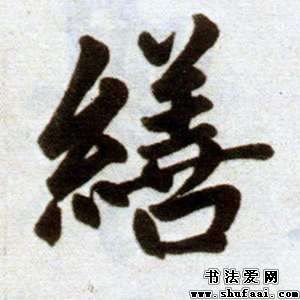 繕
书法爱网
www.shufaai.com